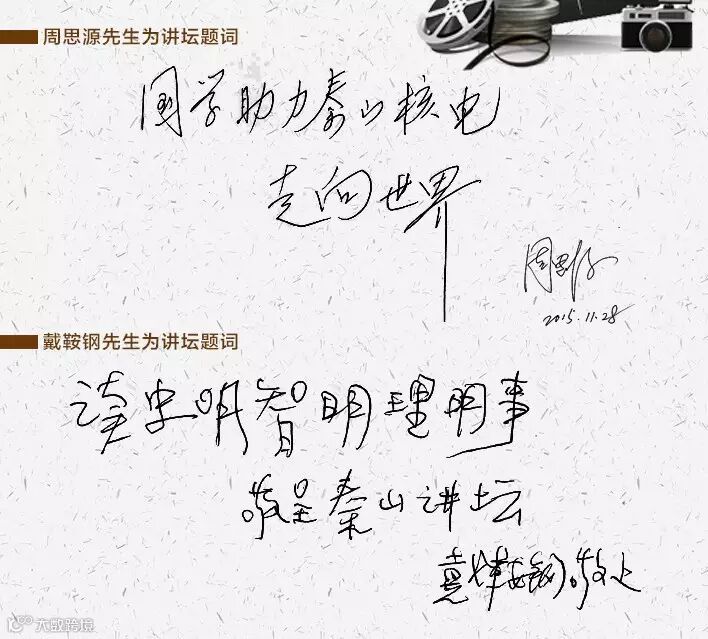 周思源先生为讲坛题词
国学助力秦山核电
走向世界
周思源
2015.11.28
戴鞍钢先生为讲坛题词
读史明智明理明事
敬呈秦山讲坛
戴鞍钢 敬上
大数跨境